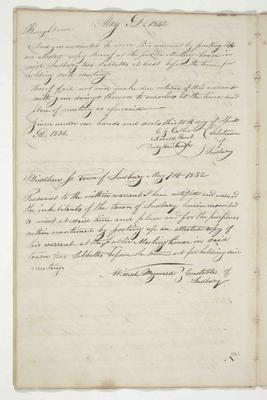 May D. 1832
And you are directed to serve this warrant by posting up
an attested copy thereof at the public Meeting house in
said Sudbury two Sabbaths at least before the time for
holding said meeting.
Hereof fail not and make due return of this warrant
with your doings thereon to ourselves at the time and
place of meeting as aforesaid.
Given under our hands and seals this 30th day of April
D. 1832.
Selectmen
of
Sudbury
Middlesex Ss. Town of Sudbury May 1832
Pursuant to the within warrant I have notified and warned
the inhabitants of the town of Sudbury herein
to meet at said time and place and for the purposes
within mentioned by posting up an attested copy of
this warrant at the public Meeting house in said
town two Sabbaths before the time set for holding said
meeting.
Maynard Constable of
Sudbury